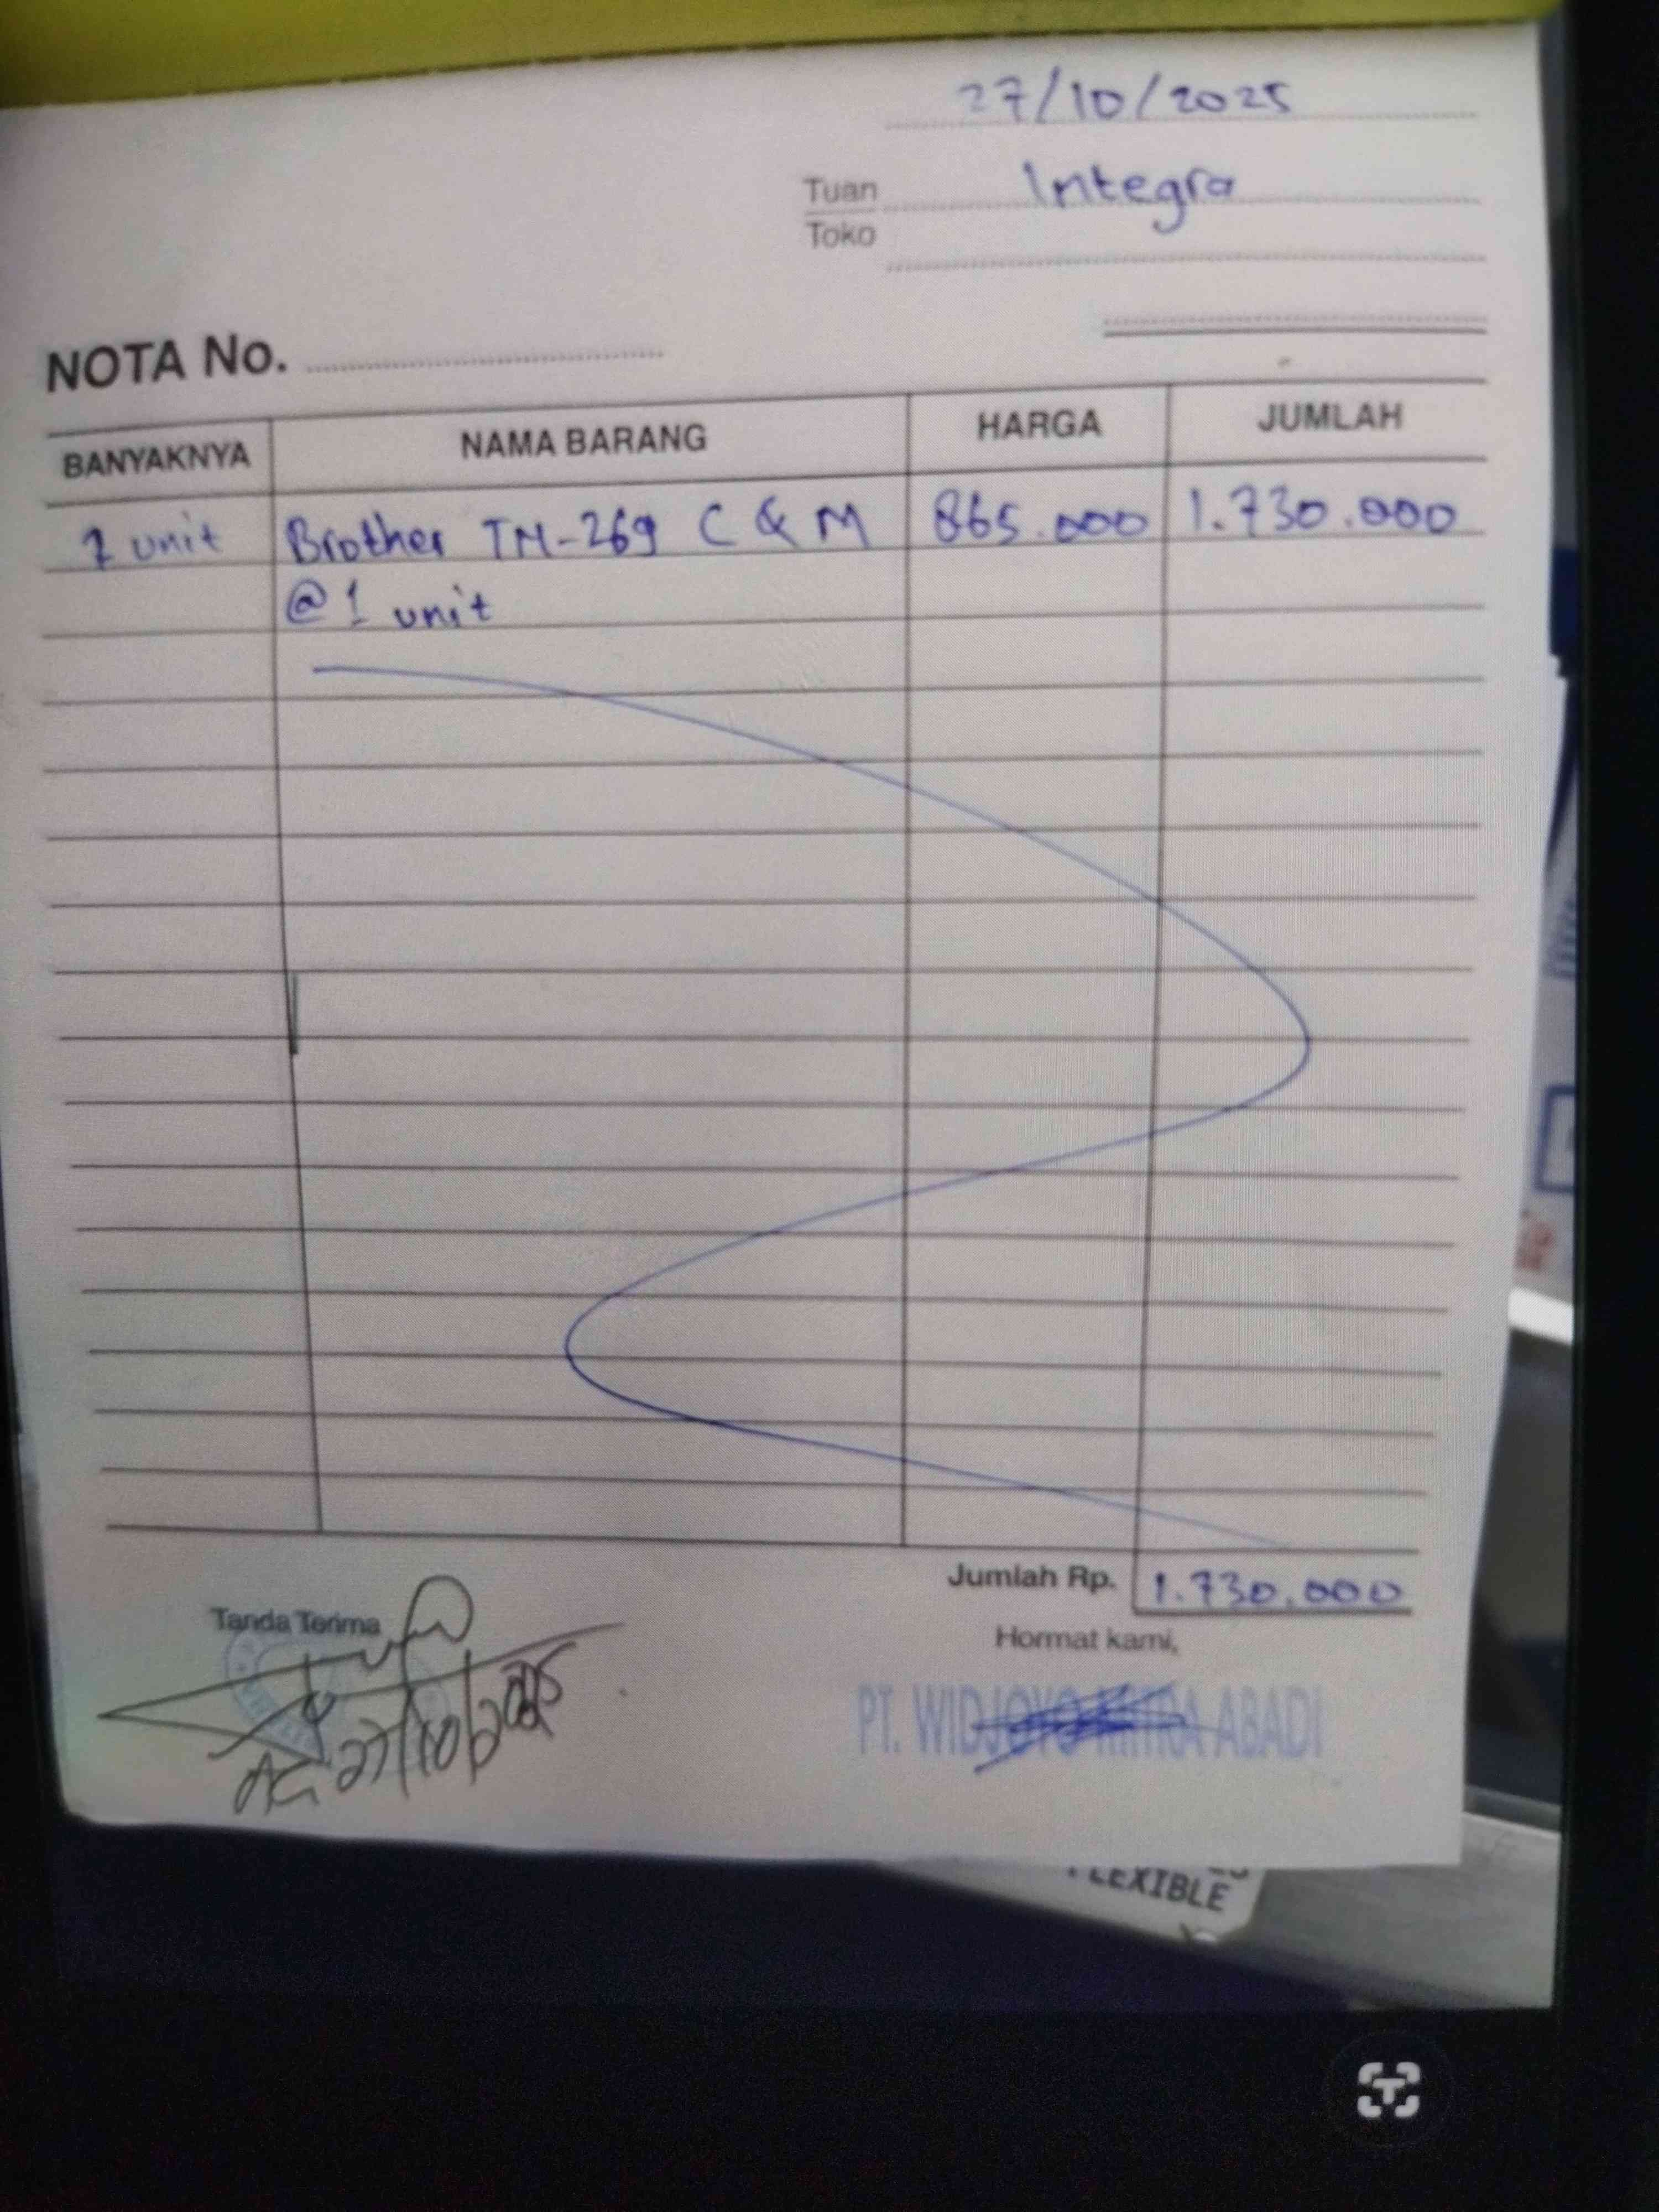 27/10/2025
Tuan Integra
Toko
NOTA No.
BANYAKNYA NAMA BARANG HARGA JUMLAH
2 unit Brother TM-269 C & M 865.000 1.730.000
@ 1 unit
Jumlah Rp. 1.730.000
Tanda Terima
Hormat kami,
PT. WIDJOYO MITRA ABADI
27/10/2025
FLEXIBLE